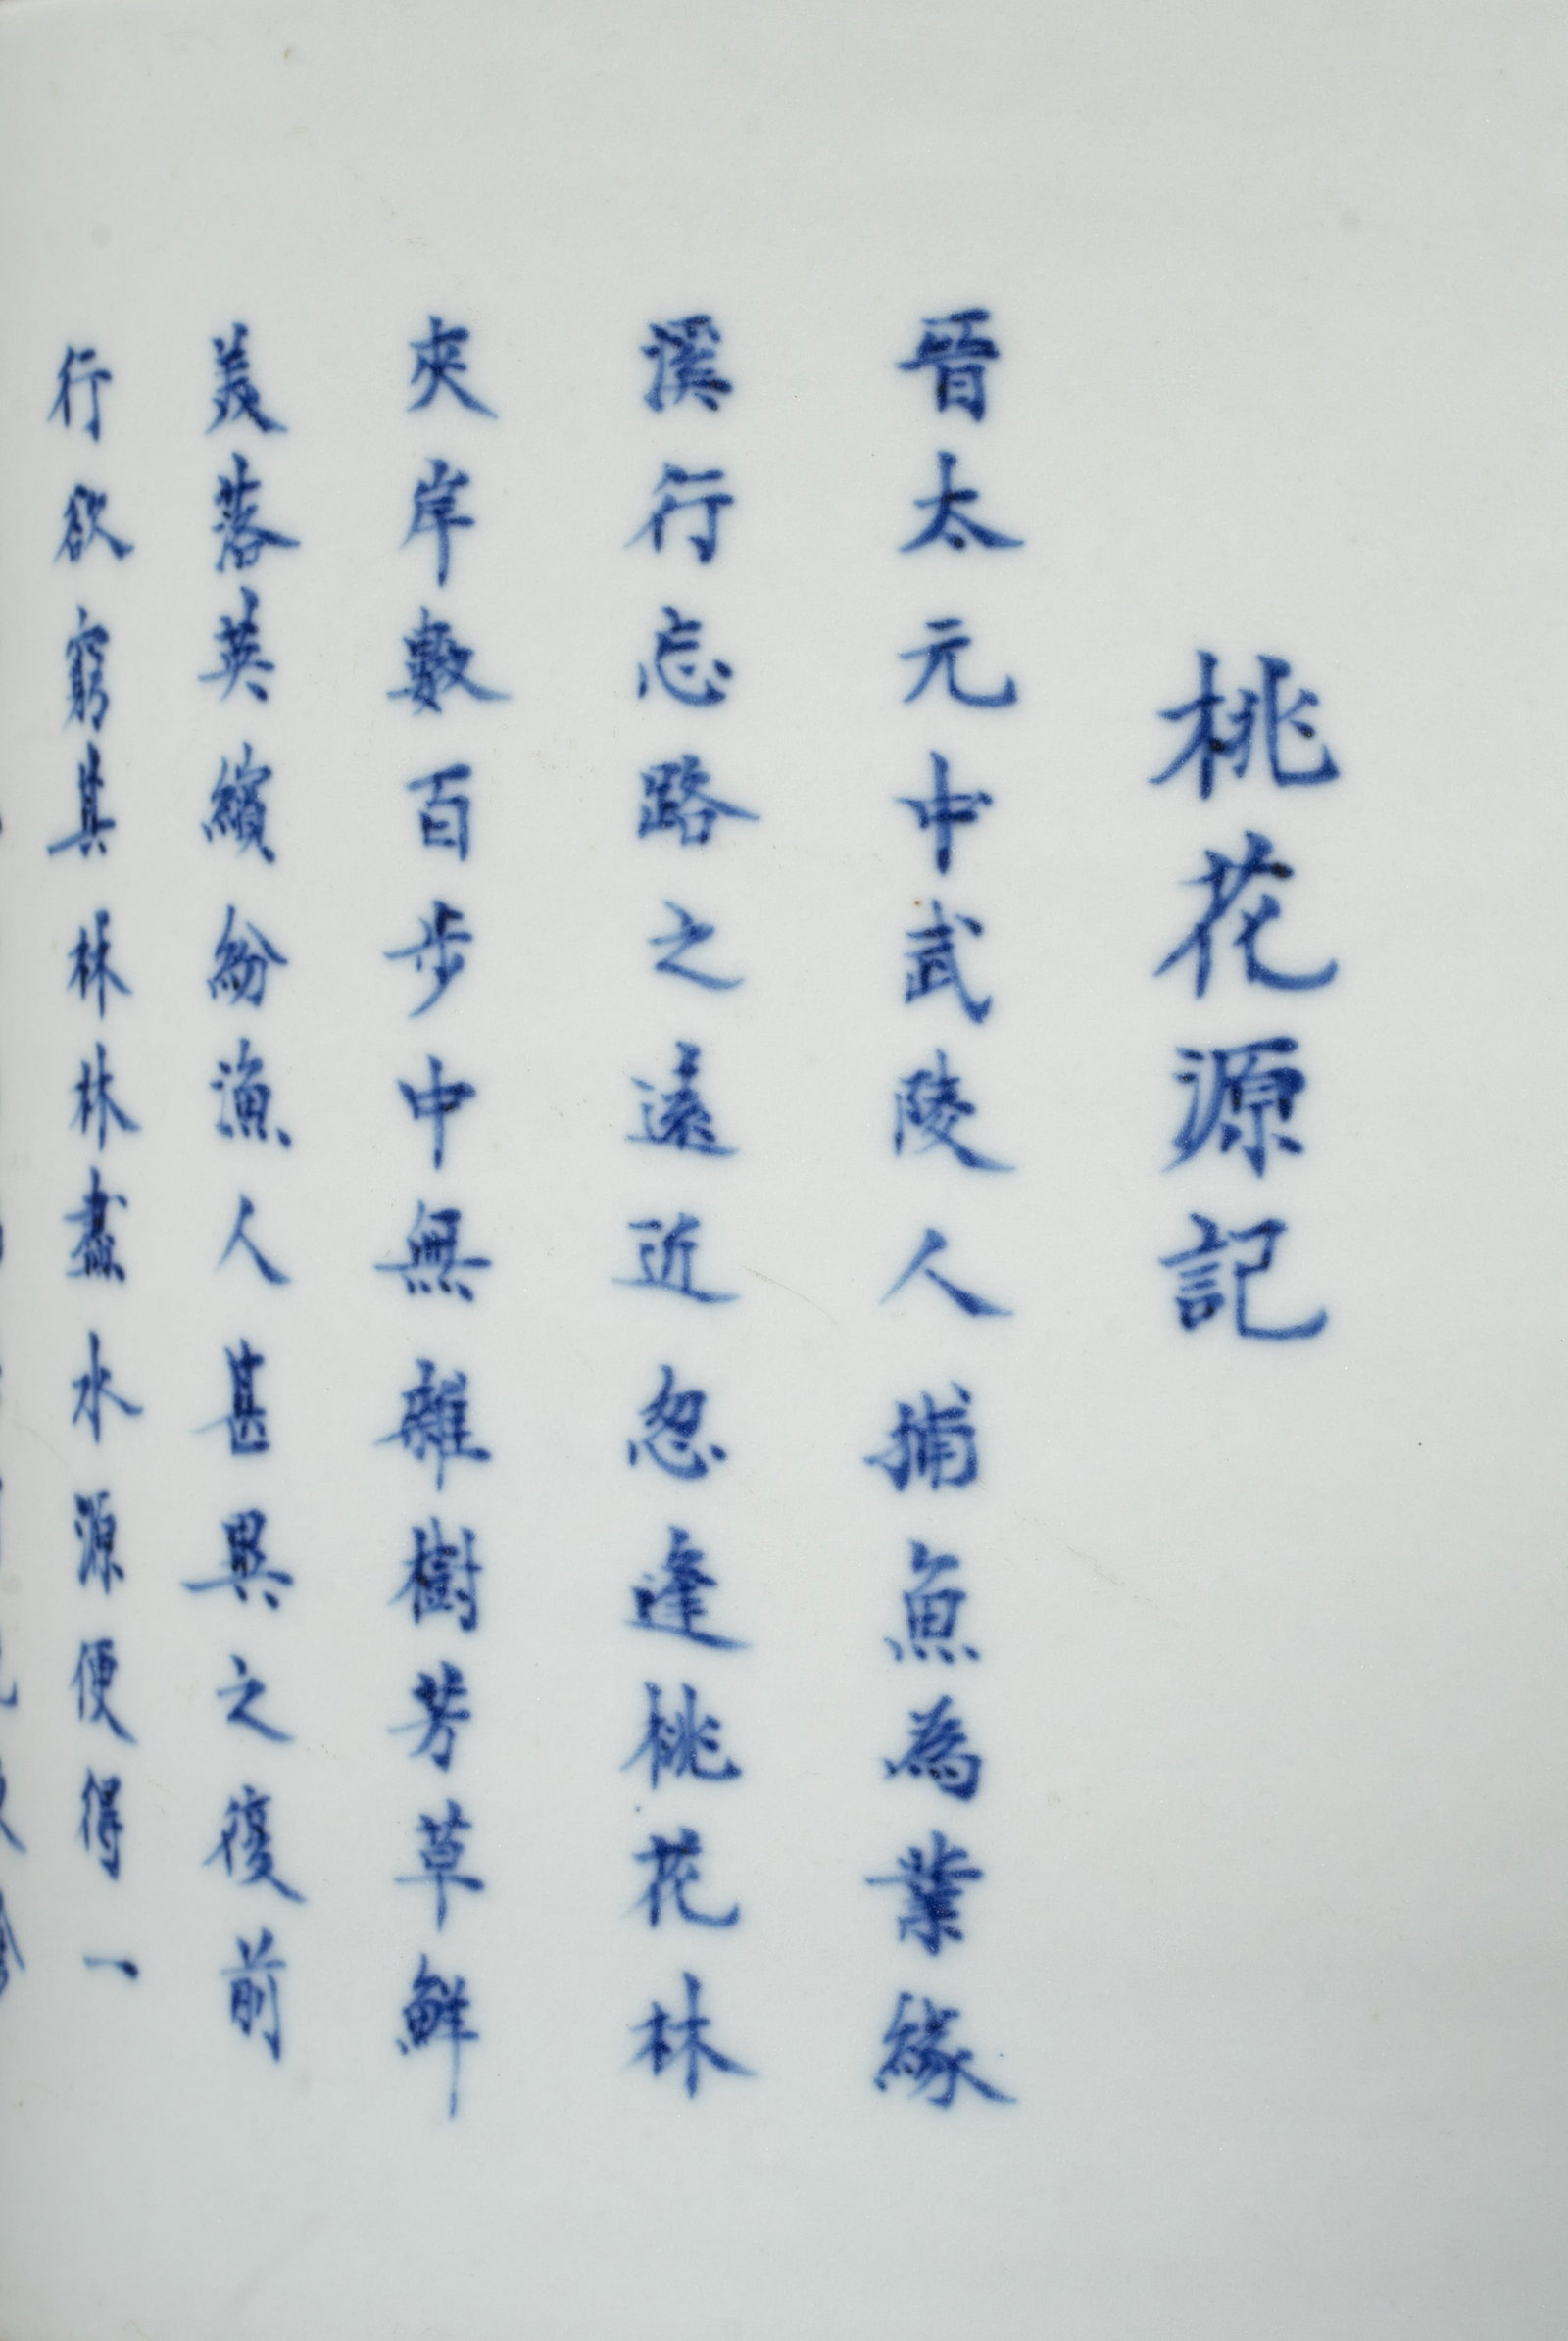 桃花源記
晉太元中武陵人捕魚為業緣
溪行忘路之遠近忽逢桃花林
夾岸數百步中無雜樹芳草鮮
美落英繽紛漁人甚異之復前
行欲窮其林林盡水源便得一